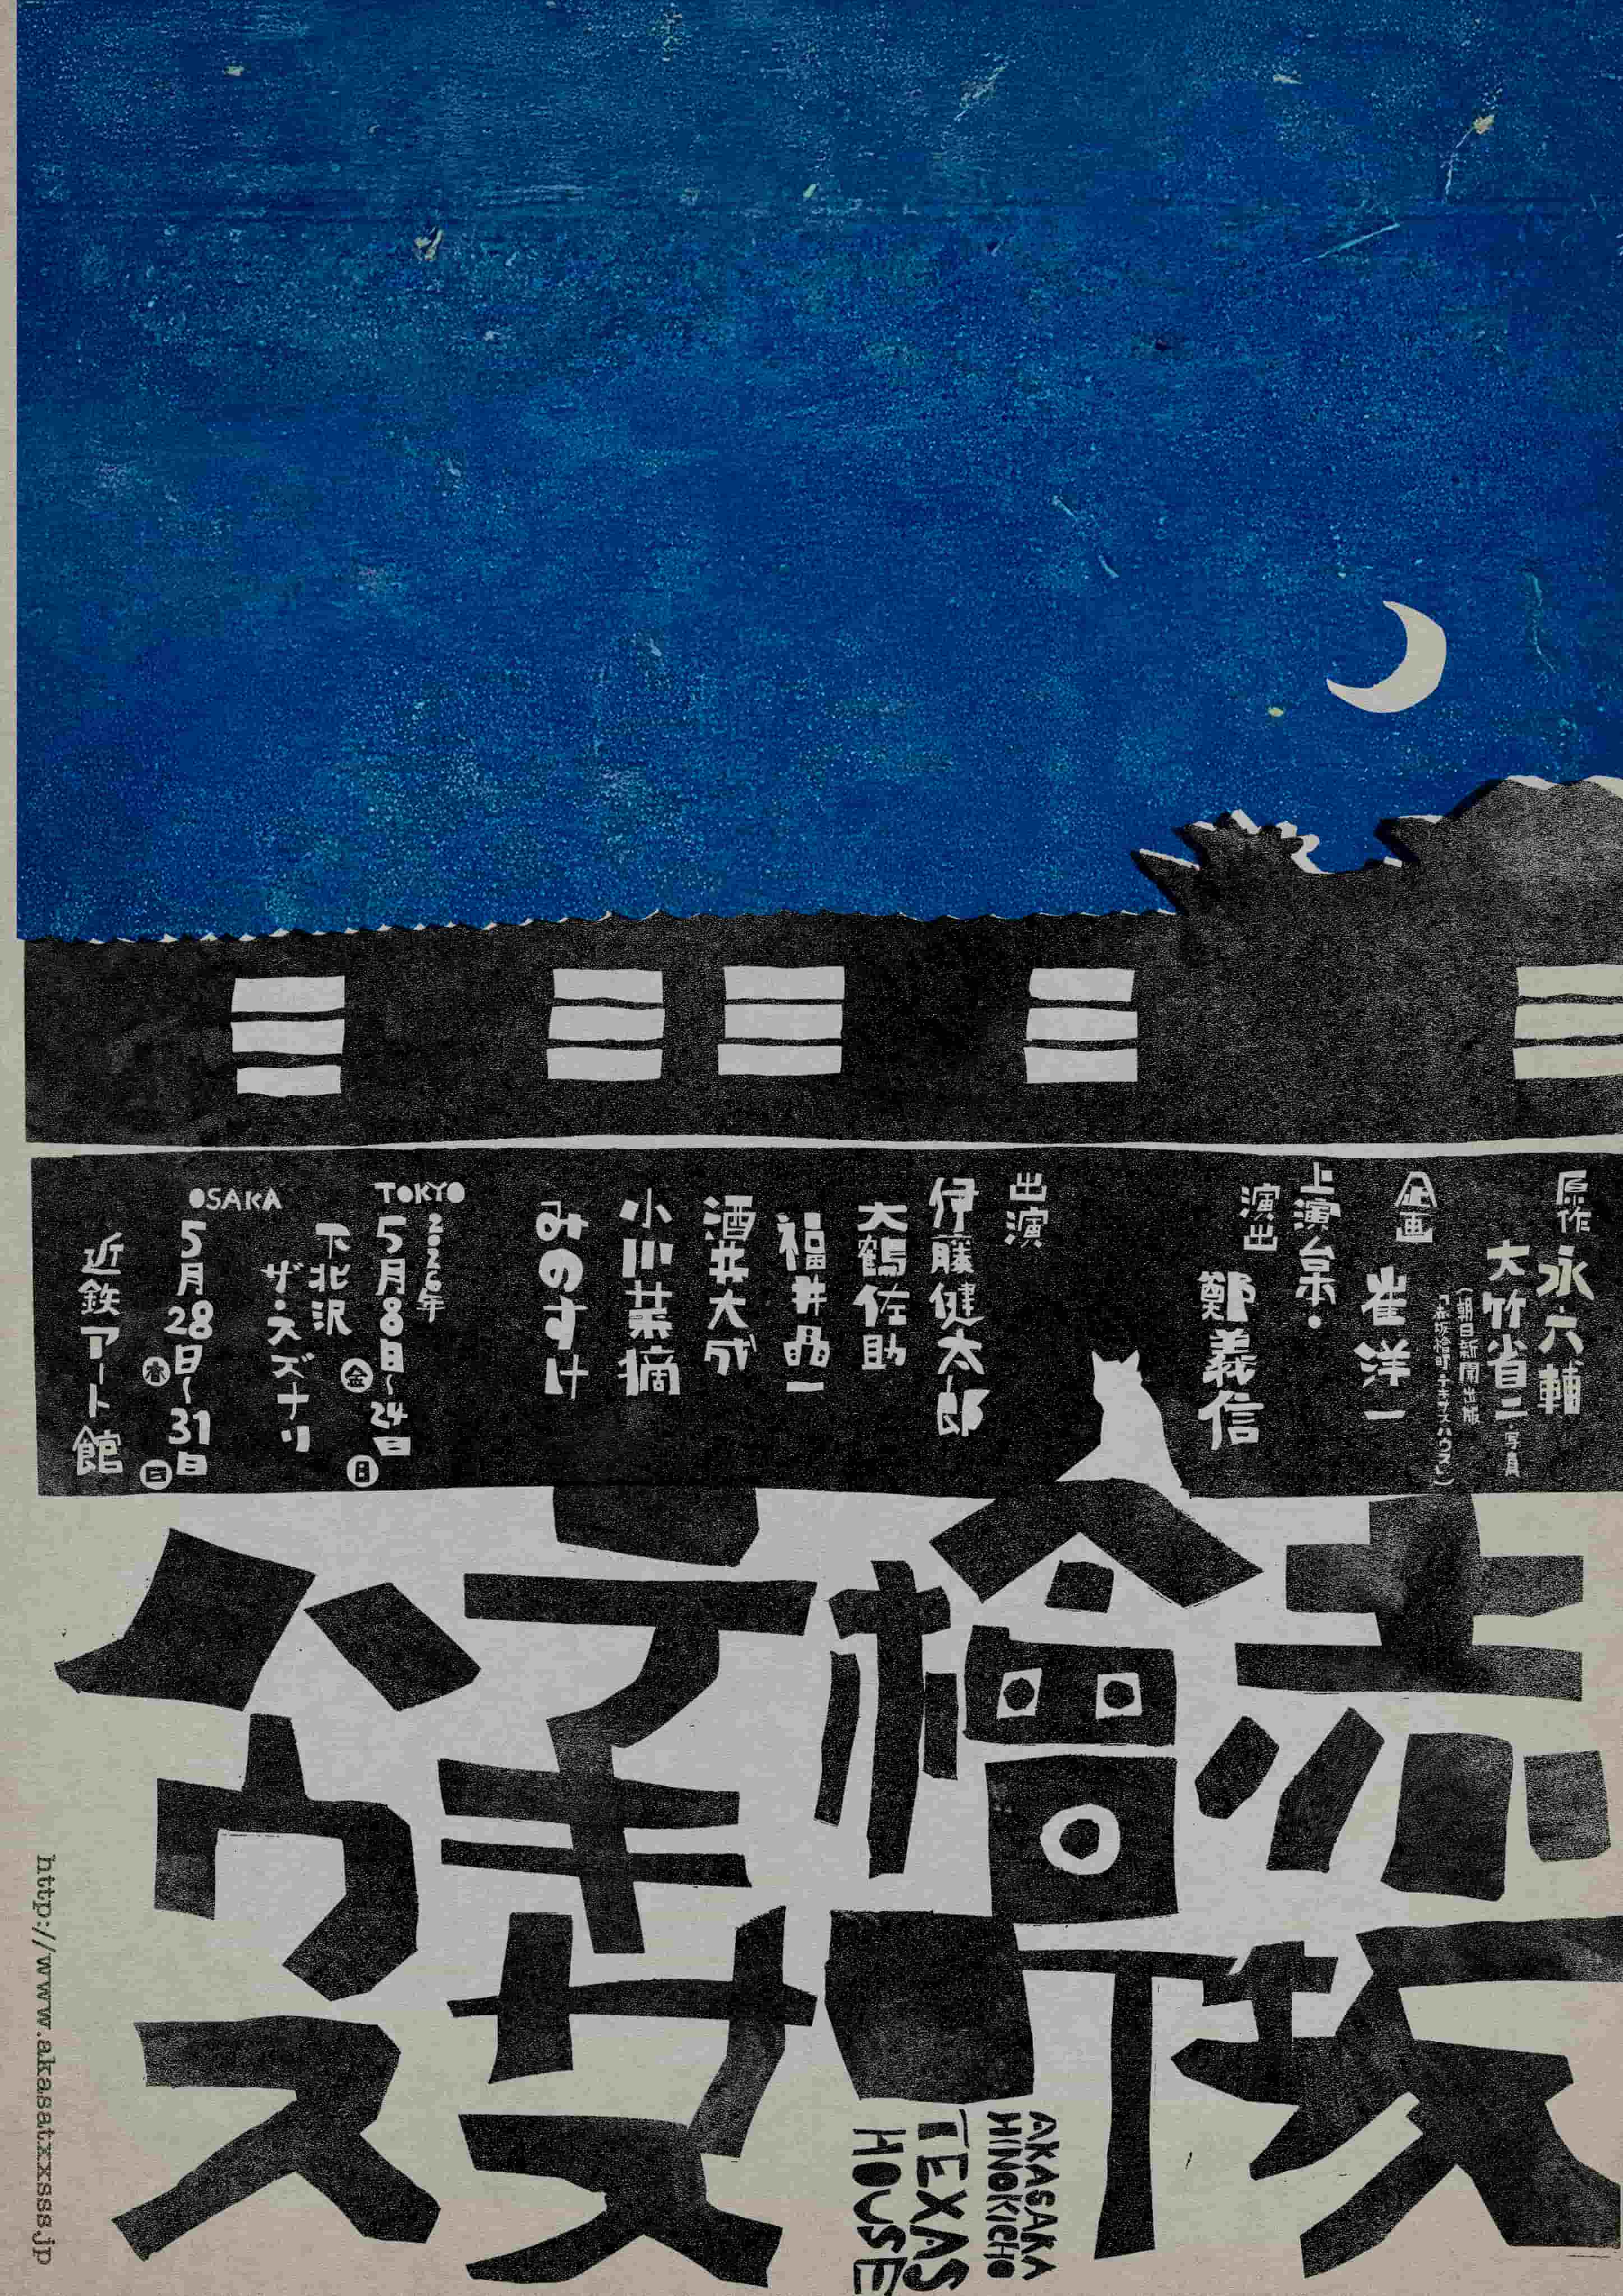 原作
永六輔
大竹省二 写真
(朝日新聞出版
「赤坂檜町テキサスハウス」)
企画
崔洋一
上演台本・
演出
鄭義信
出演
伊藤健太郎
大鶴佐助
福井晶一
酒井大成
小川菜摘
みのすけ
TOKYO
2026年
5月8日(金)~24日(日)
下北沢
ザ・スズナリ
OSAKA
5月28日(木)~31日(日)
近鉄アート館
赤坂
檜町
テキサス
ハウス
AKASAKA
HINOKICHO
TEXAS
HOUSE
http://www.akasatxxsss.jp